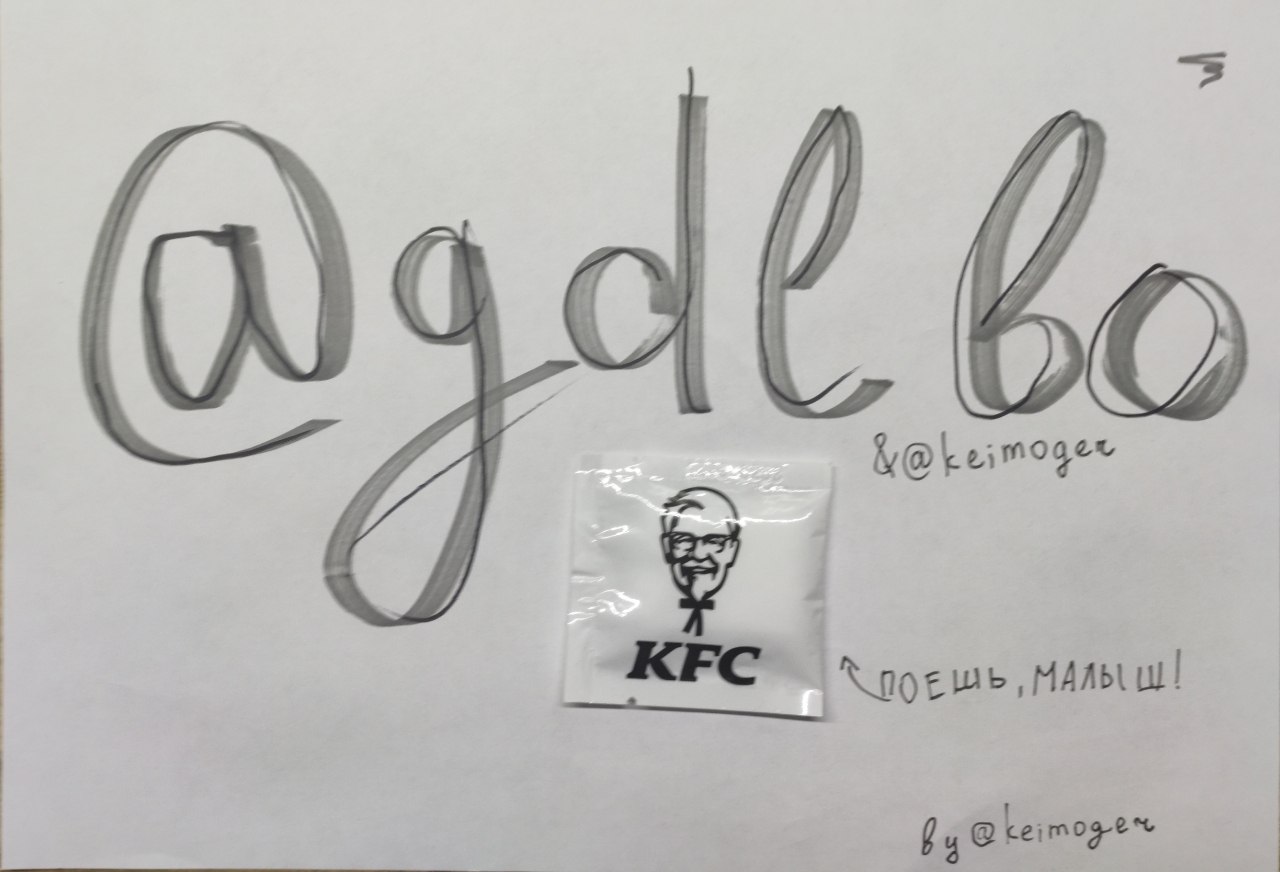 @gdlbo
&@keimoger
KFC
ПОЕШЬ, МАЛЫШ!
by @keimoger